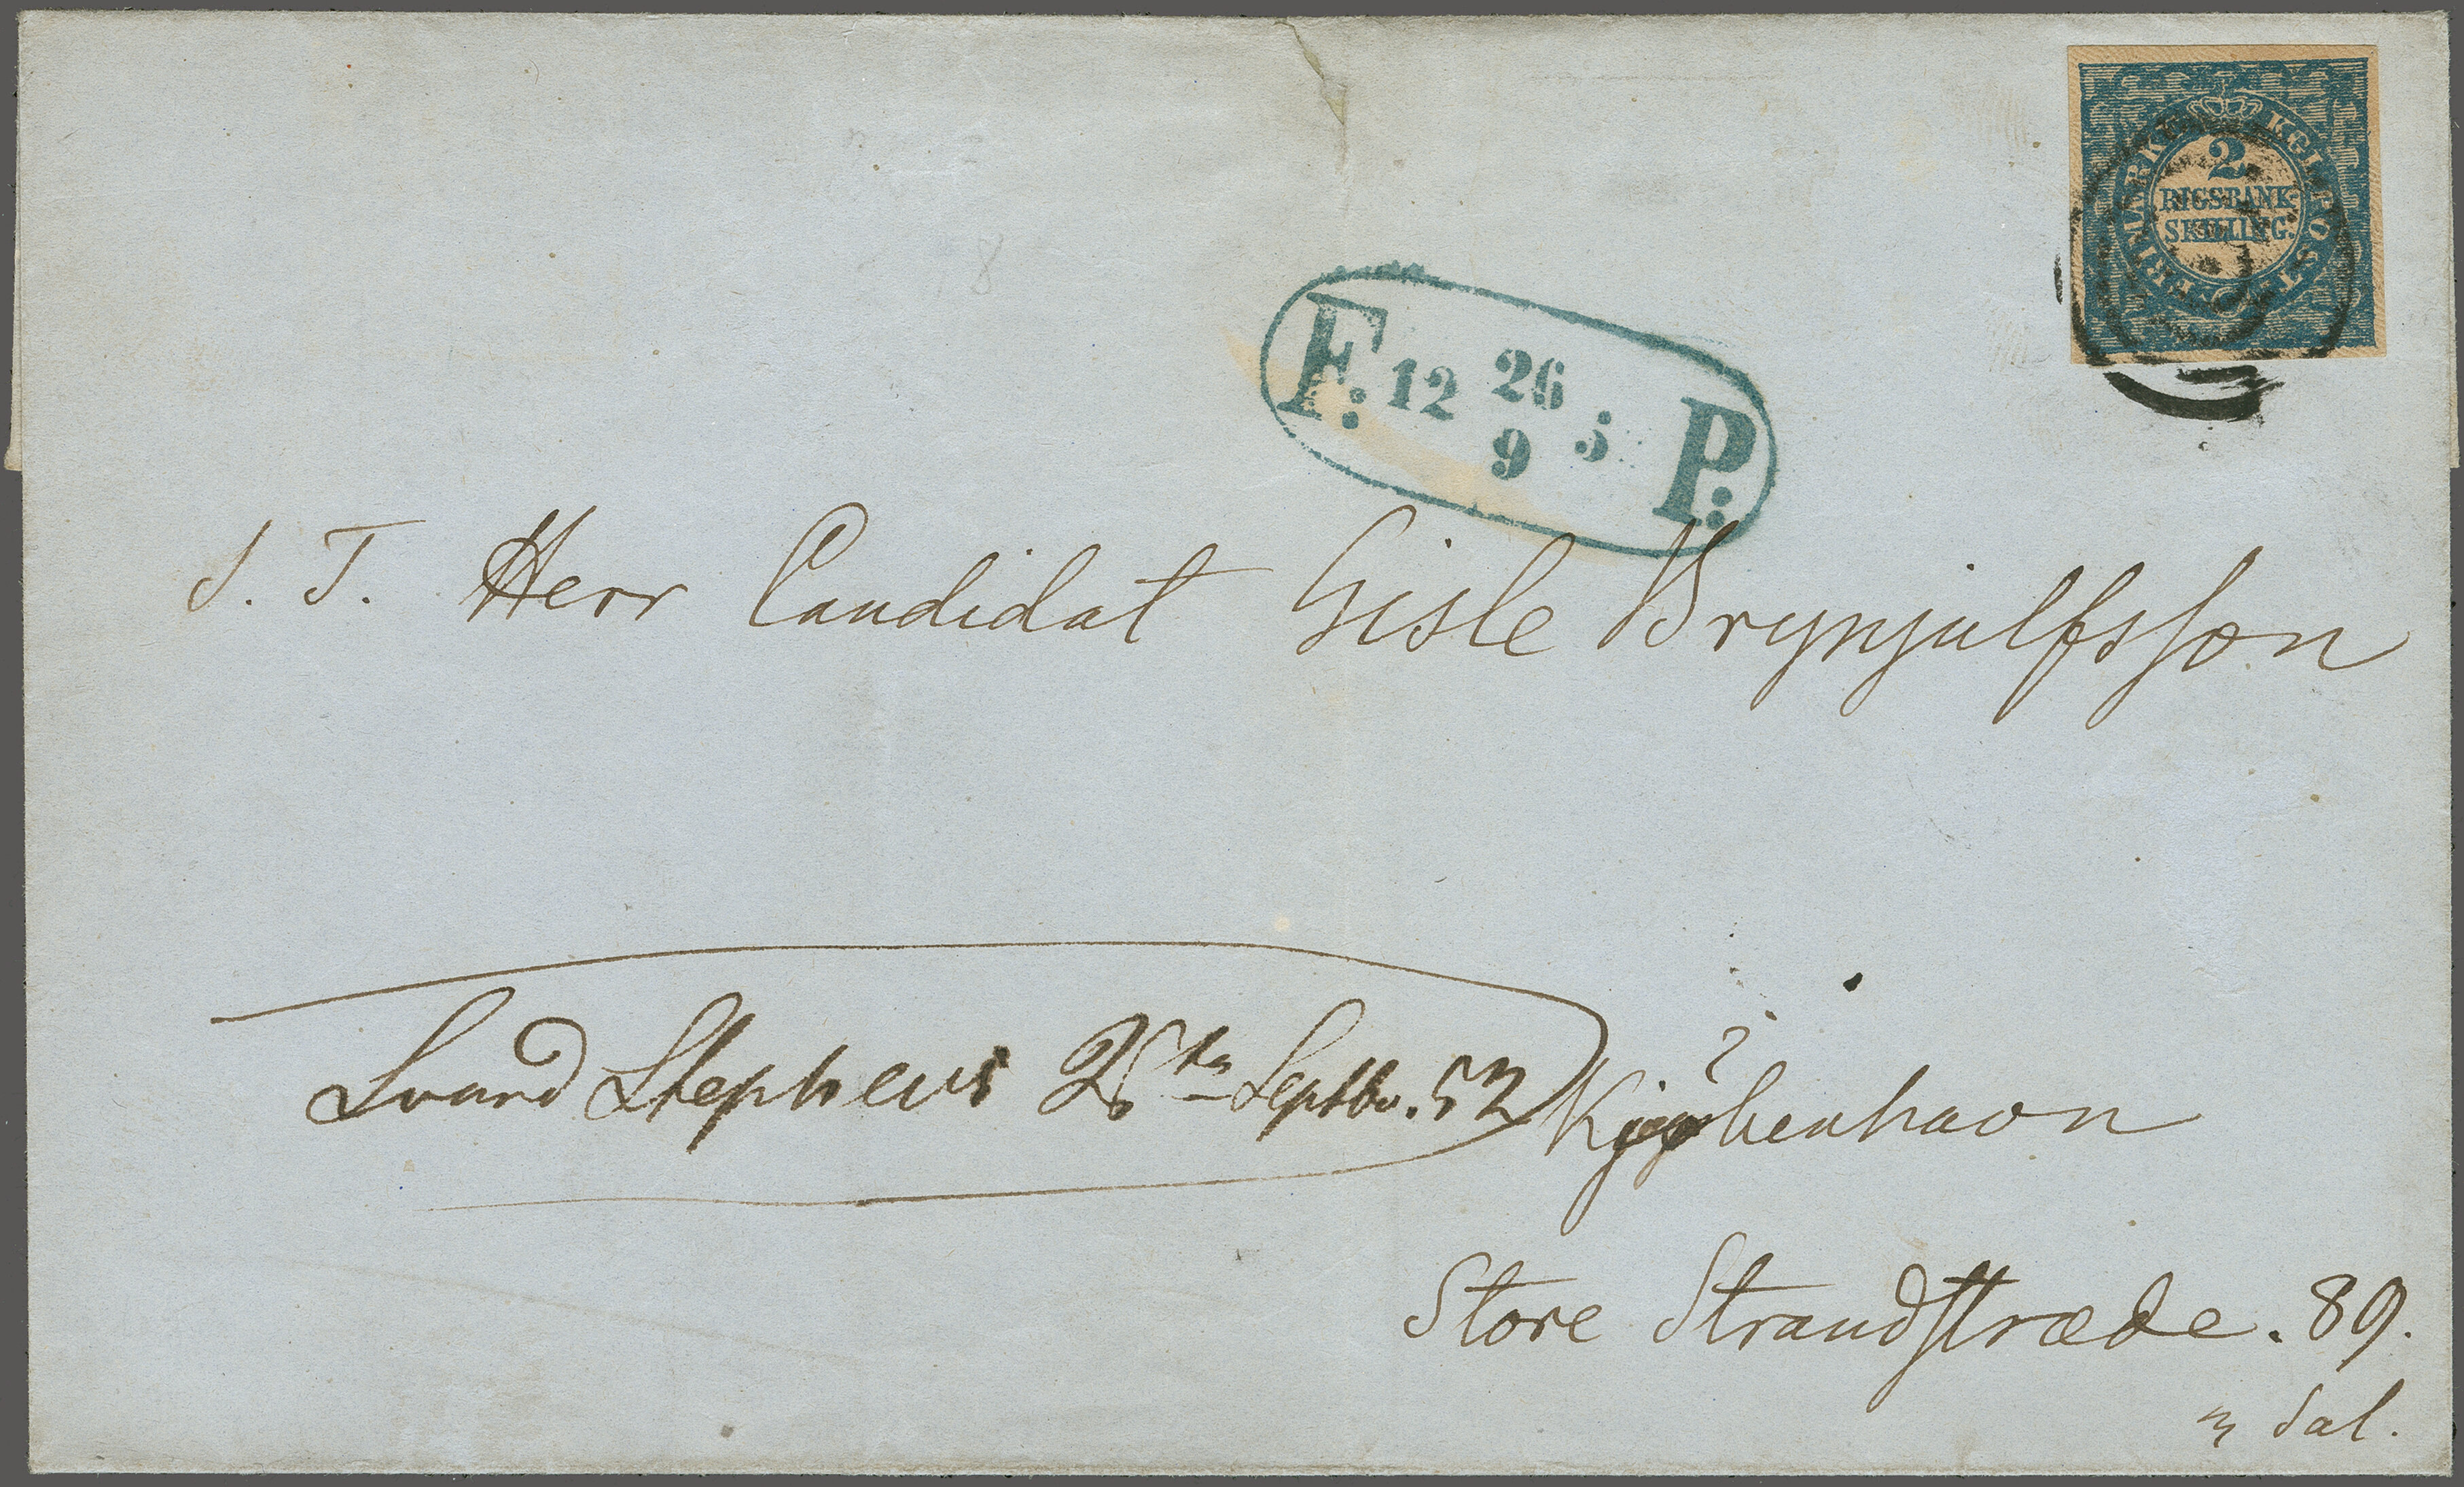 KGL POST FRIMÆRKE
2
RIGSBANK
SKILLING.
F: 12 26/9 5 P:
S. T. Herr Candidat Gisle Brynjulfsson
Stephens Septbr. 52
Kjøbenhavn
Store Strandstræde. 89.
3 Sal.